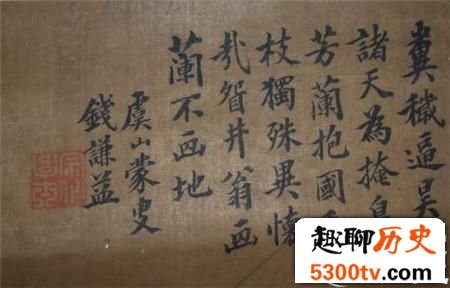 糞穢逼昊
諸天為掩
芳蘭抱國
枝獨殊異懷
哉眢井翁画
蘭不画地
虞山蒙叟
錢謙益
趣聊历史
5300tv.com